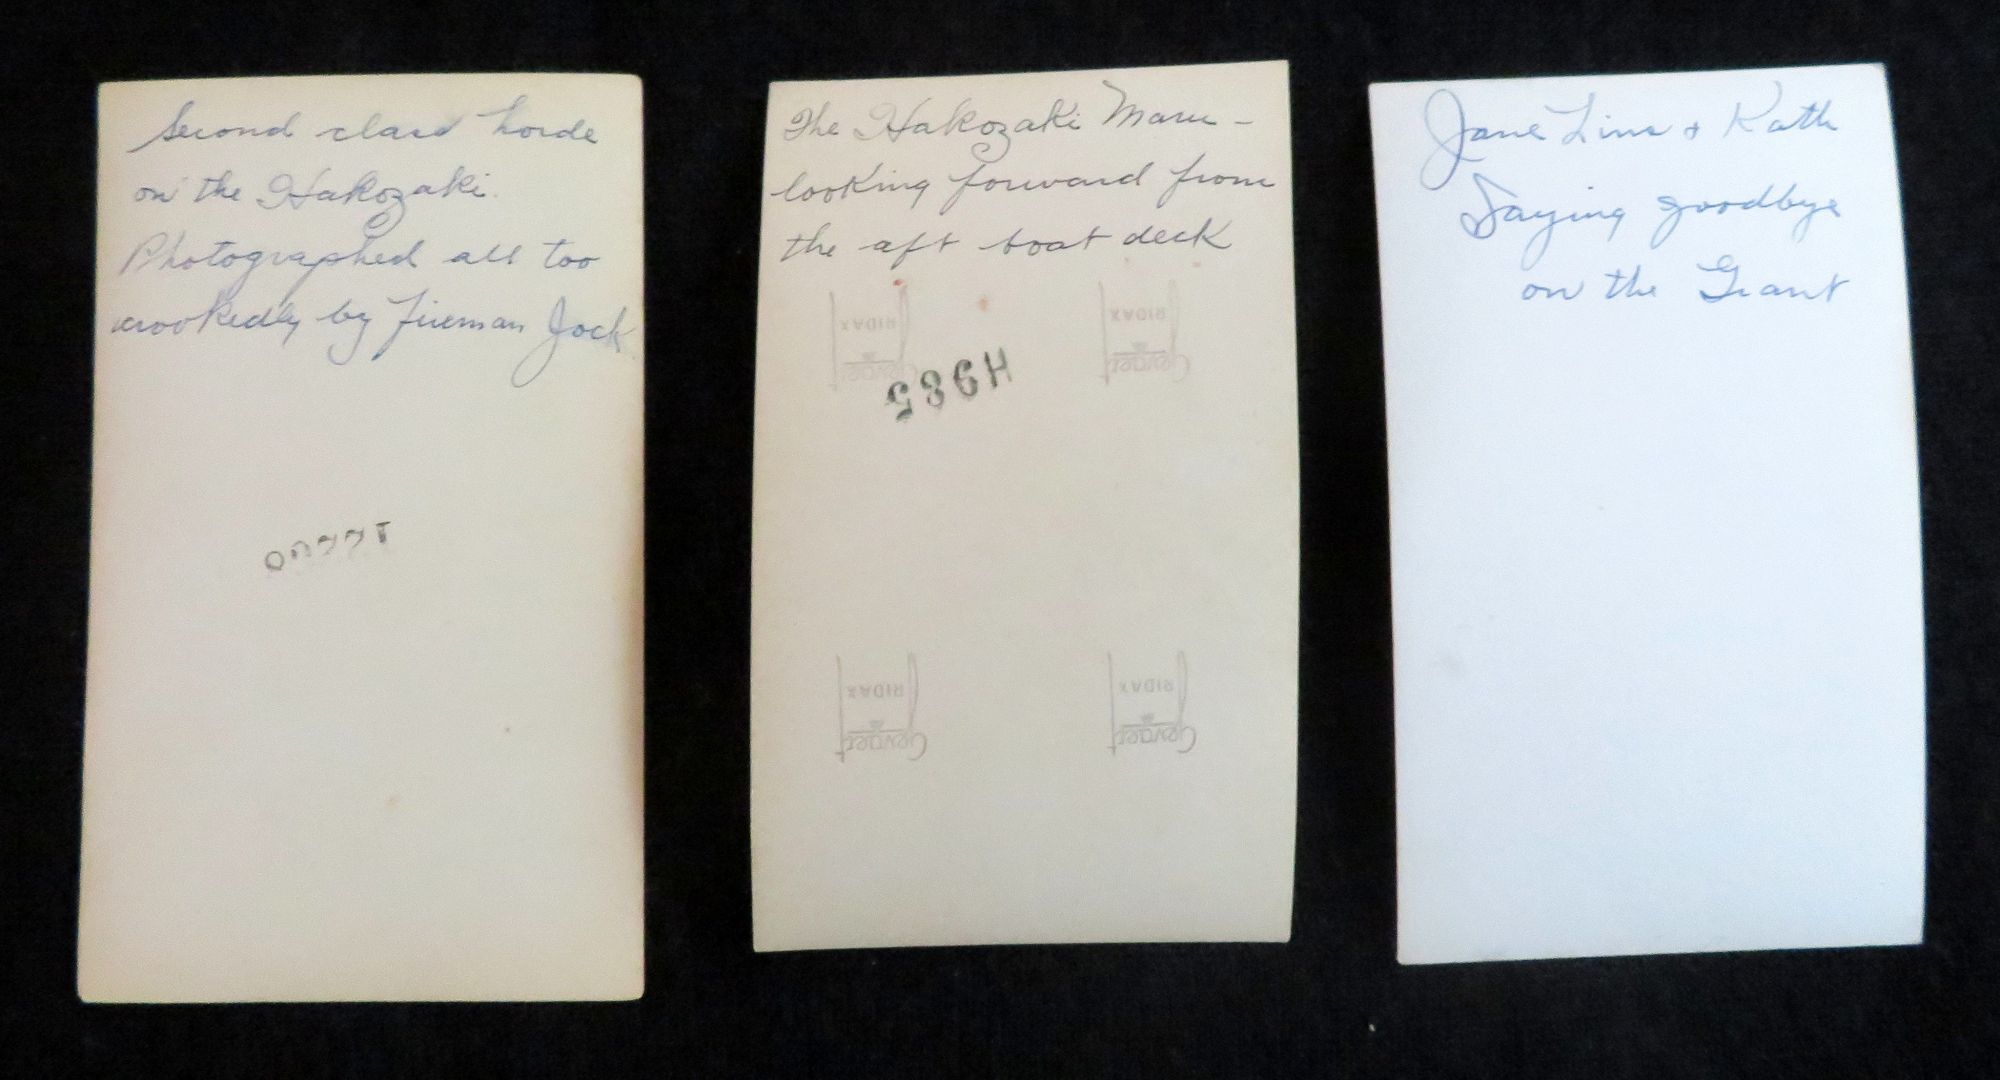 Second class horde
on the Hakozaki.
Photographed all too
crookedly by Fireman Jock
The Hakozaki Maru -
looking forward from
the aft boat deck
RIDAX
Gevaert
RIDAX
Gevaert
H985
RIDAX
Gevaert
RIDAX
Gevaert
Jane Lins + Kath
Saying goodbye
on the Grant